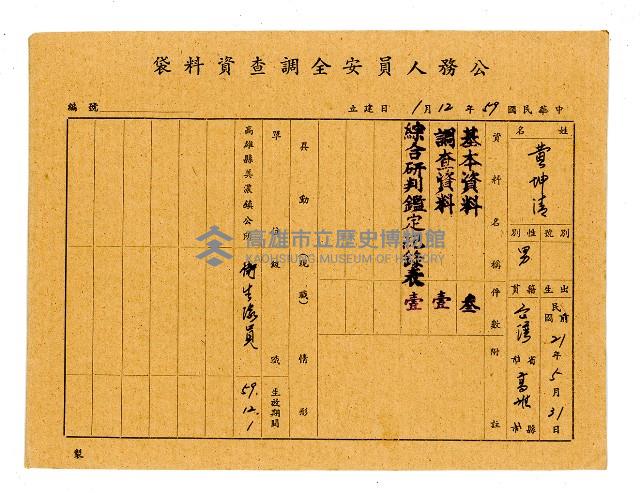 公務人員安全調查資料袋
中華民國59年12月1日建立
編號
姓名
黄坤清
別號 性別
男
出生 籍貫
民國前21年5月31日
台灣省高雄縣
資料名稱 件數 附註
基本資料 叁
調查資料 壹
綜合研判鑑定紀錄表 壹
異動(現職)情形
單位 級職 生效期間
高雄縣美濃鎮公所 衛生隊員 59.12.1
製
高雄市立歷史博物館
KAOHSIUNG MUSEUM OF HISTORY